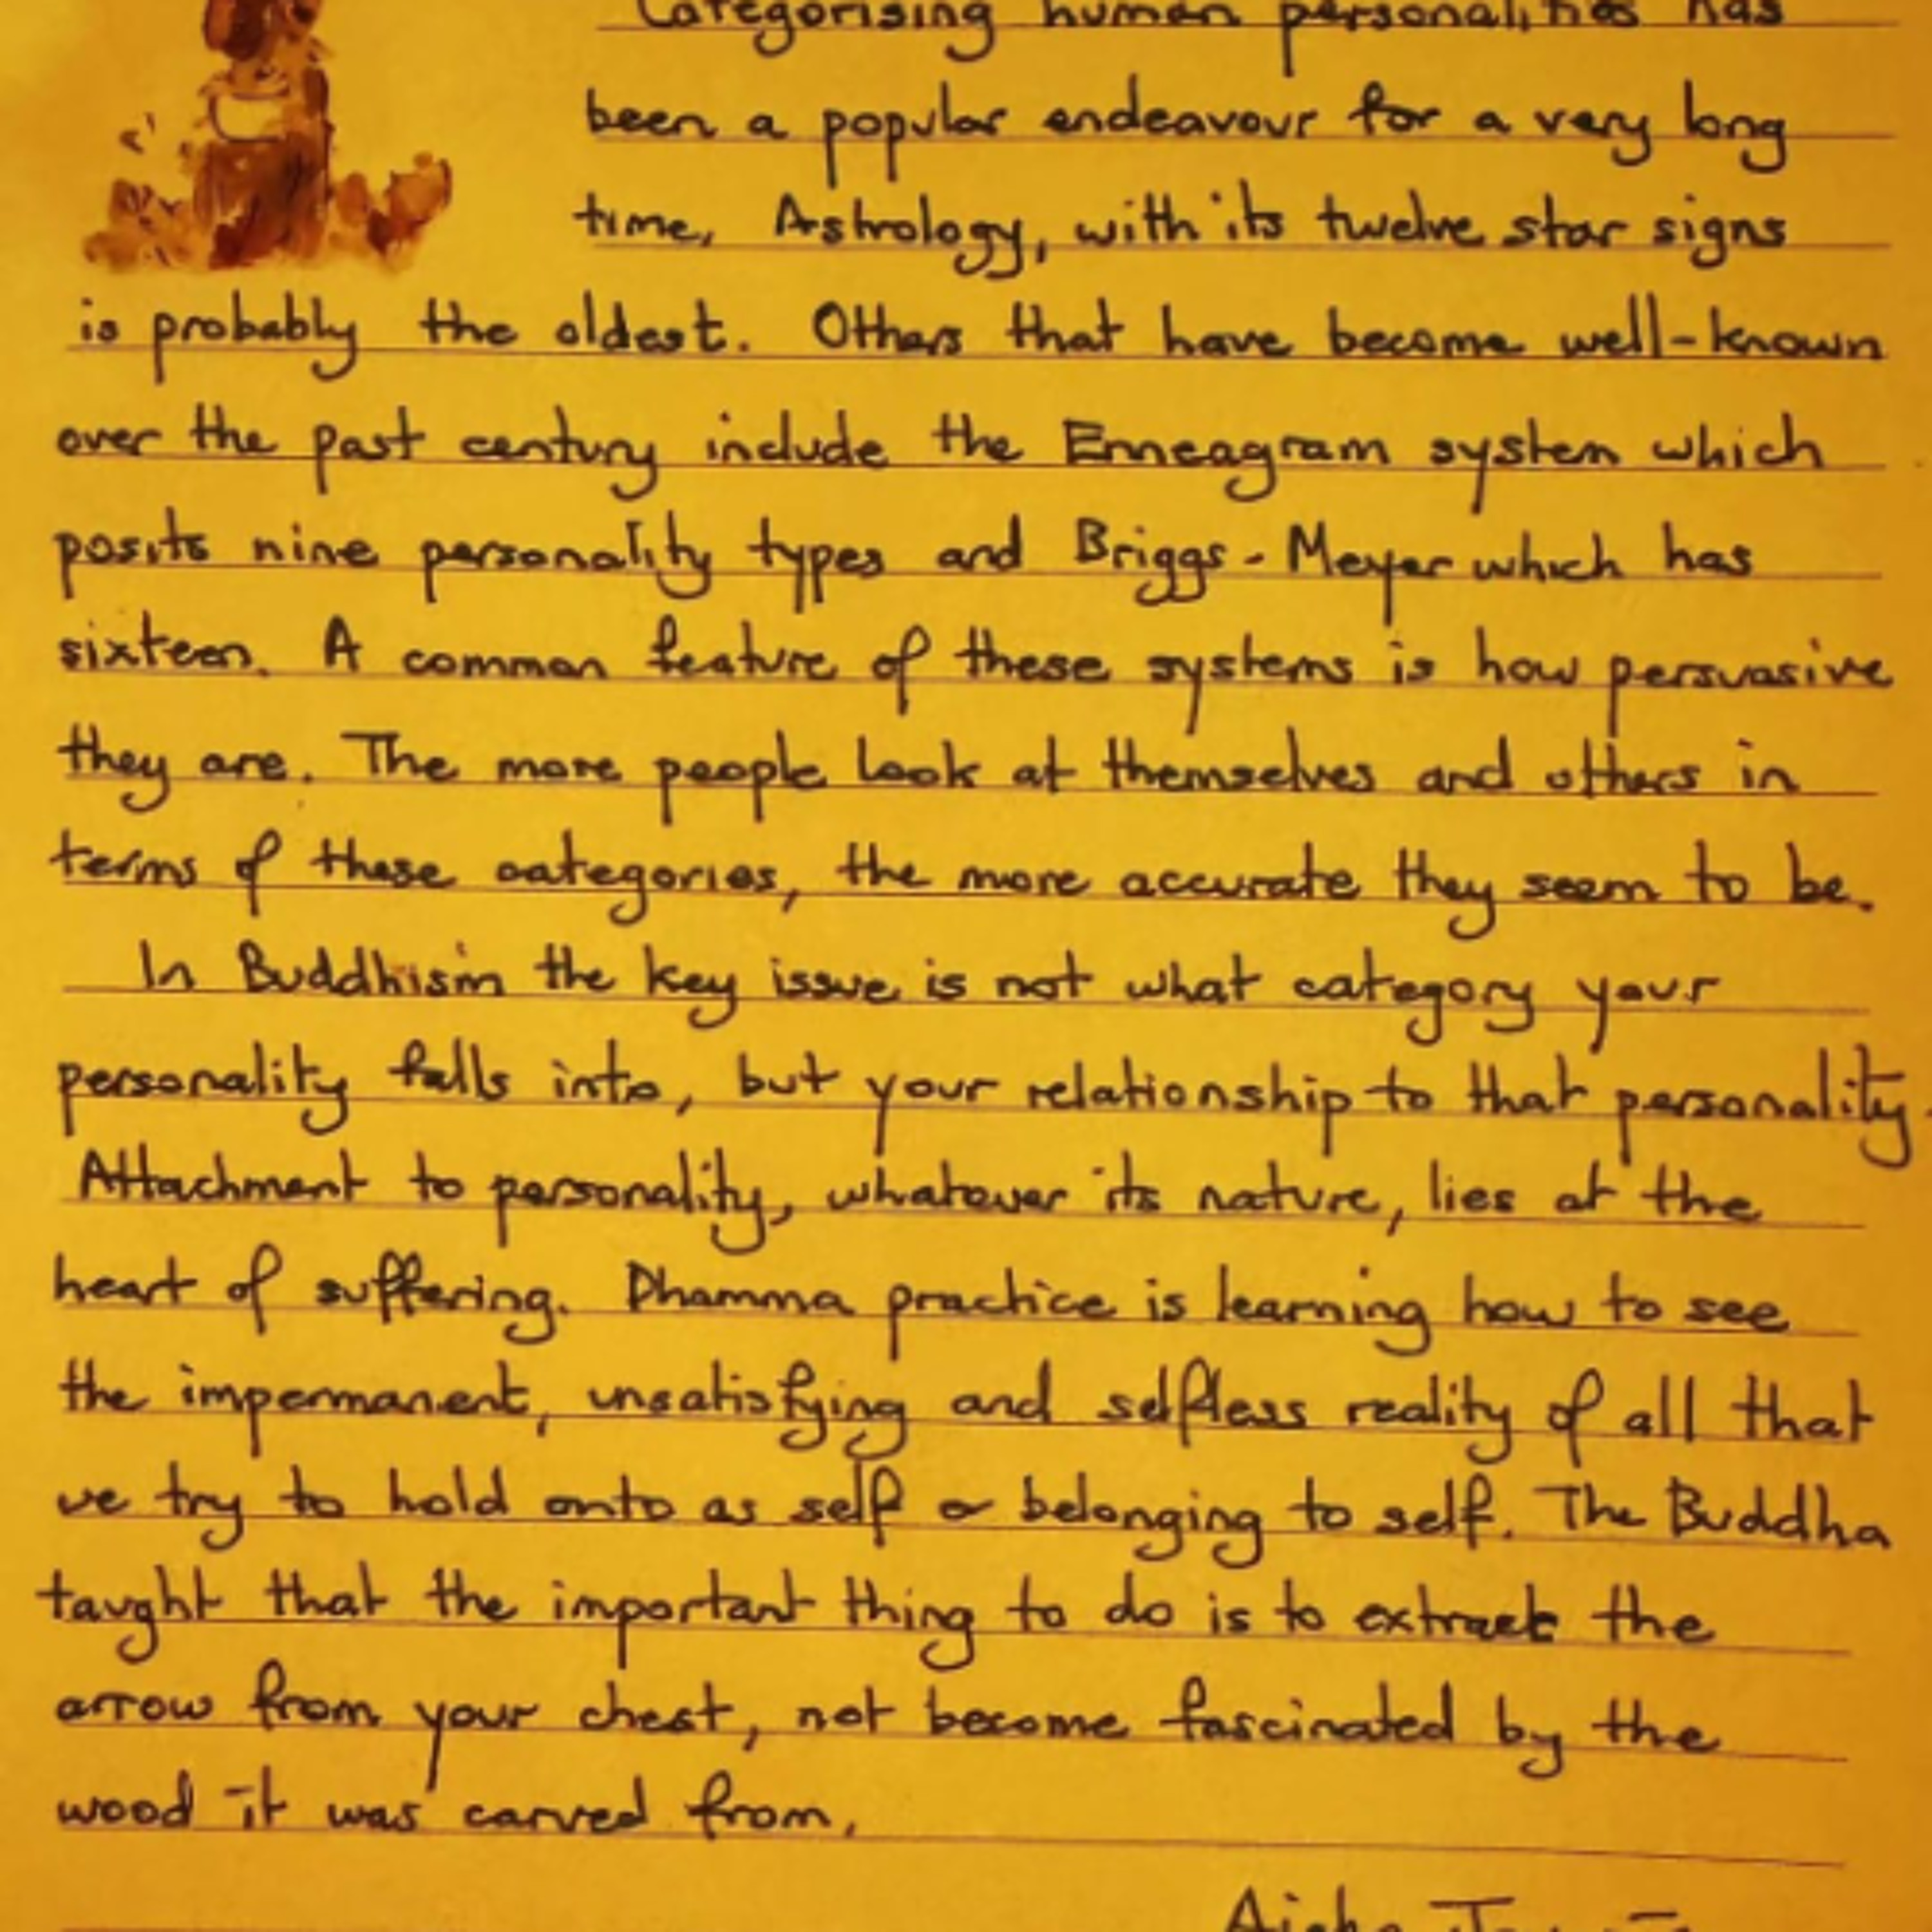 Categorising human personalities has
been a popular endeavour for a very long
time, Astrology, with its twelve star signs
is probably the oldest. Others that have become well-known
over the past century include the Enneagram system which
posits nine personality types and Briggs-Meyer which has
sixteen. A common feature of these systems is how persuasive
they are. The more people look at themselves and others in
terms of these categories, the more accurate they seem to be.
In Buddhism the key issue is not what category your
personality falls into, but your relationship to that personality.
Attachment to personality, whatever its nature, lies at the
heart of suffering. Dhamma practice is learning how to see
the impermanent, unsatisfying and selfless reality of all that
we try to hold onto as self or belonging to self. The Buddha
taught that the important thing to do is to extract the
arrow from your chest, not become fascinated by the
wood it was carved from.